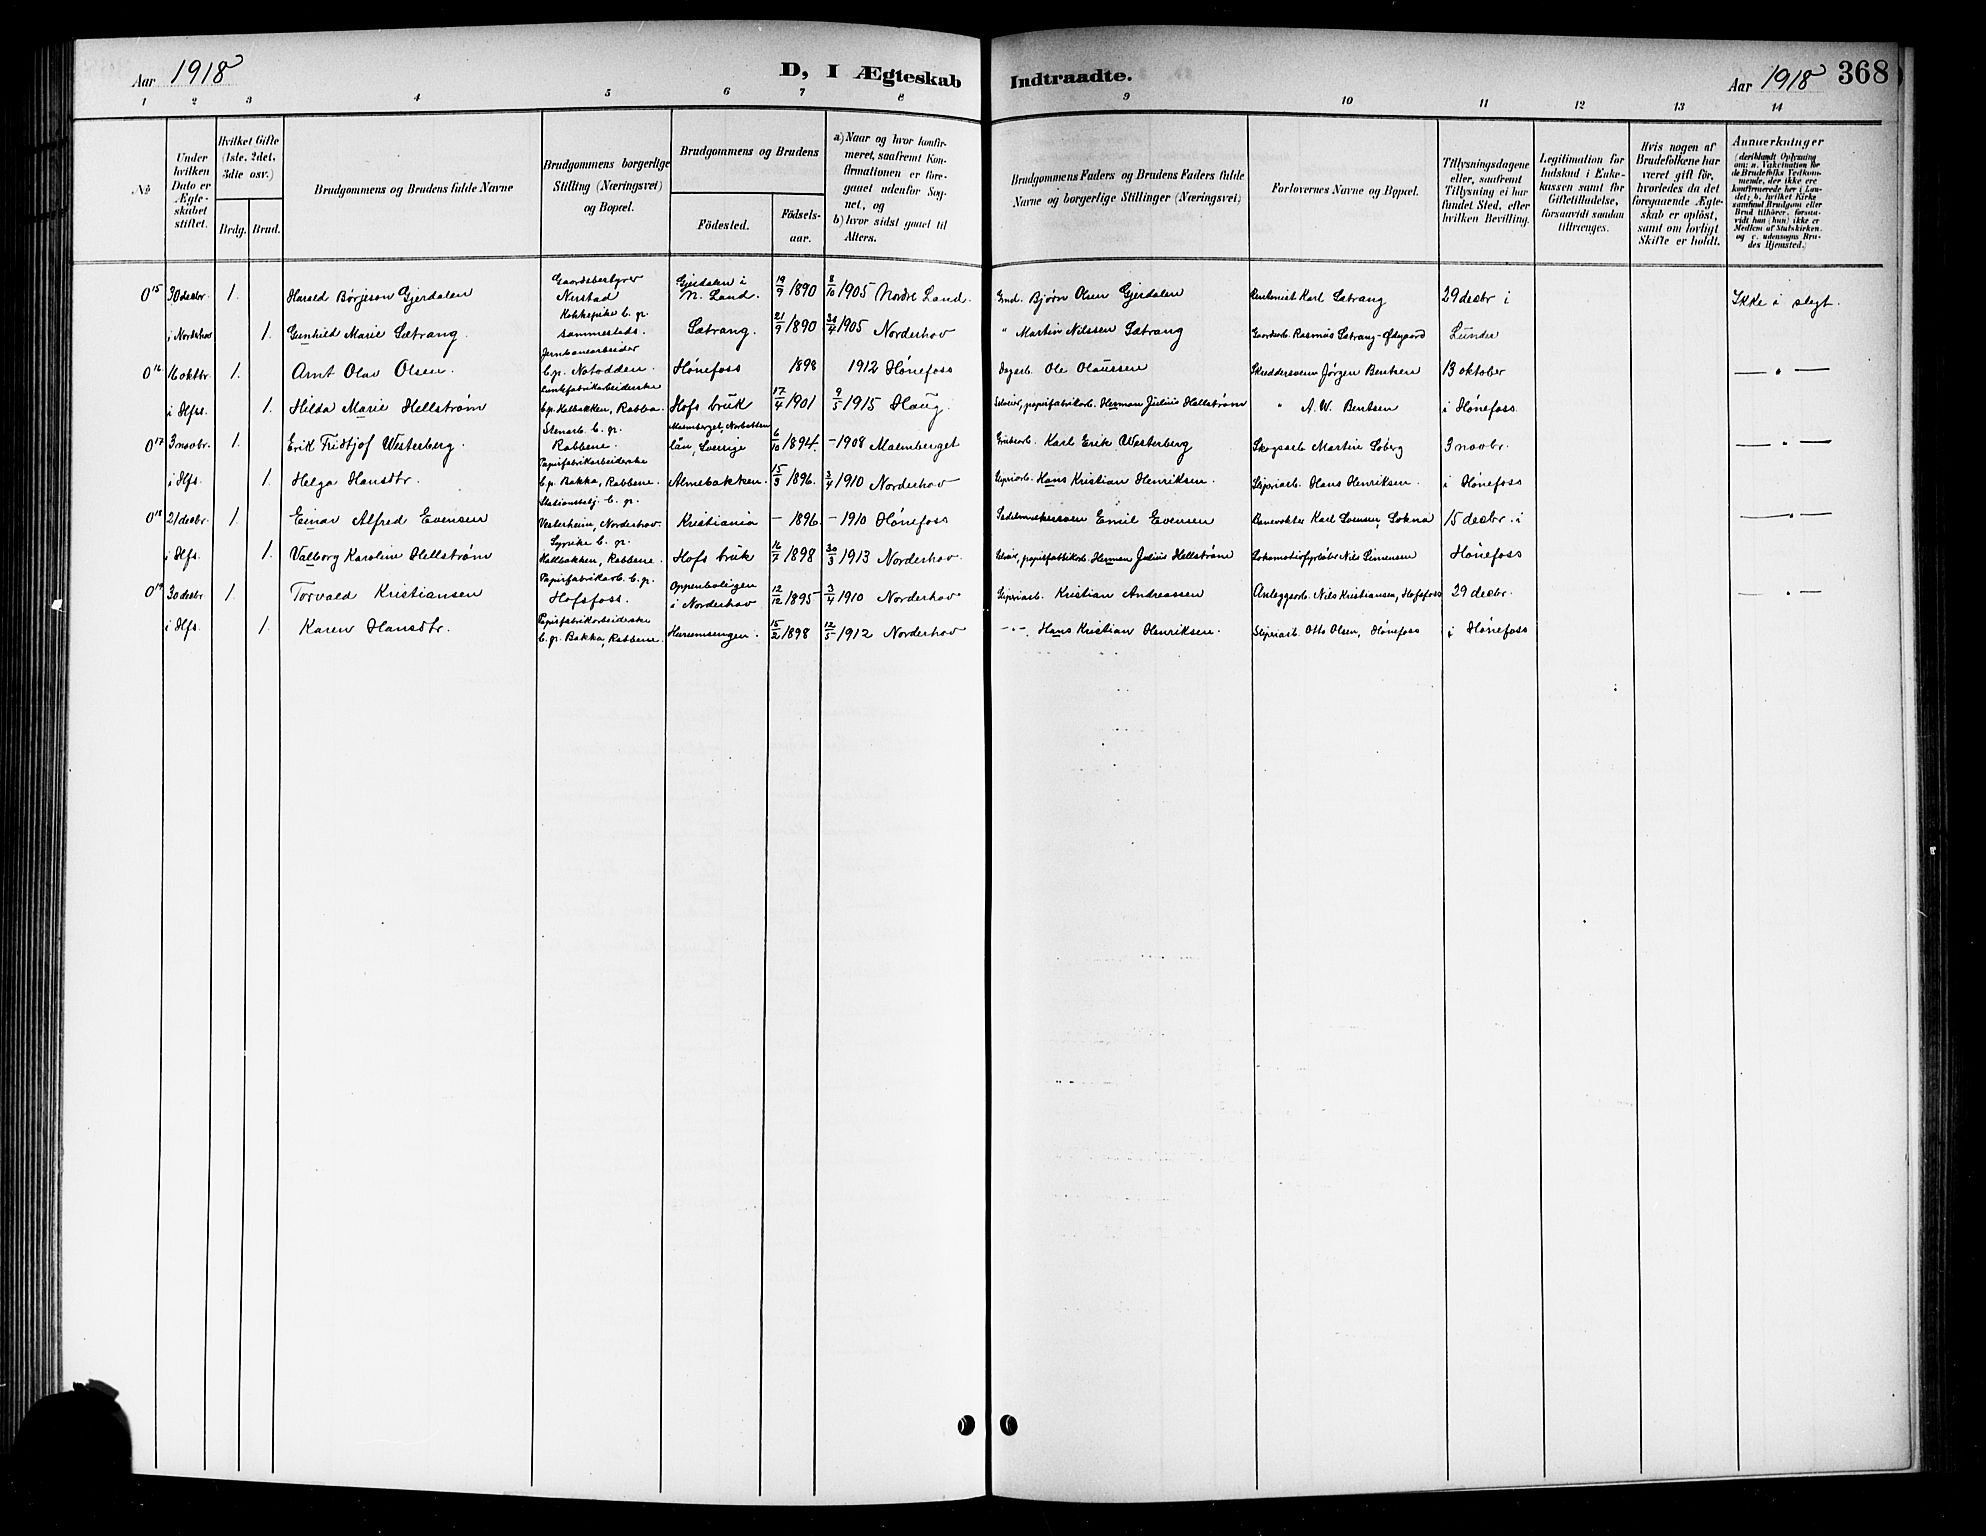 Aar 1918
D, I Ægteskab
Indtraadte.
Aar 1918
368
1 2 3 4 5 6 7 8 9 10 11 12 13 14
No
Under hvilken Dato er Ægteskabet stiftet.
Hvilket Gifte (1ste, 2det, 3die osv.)
Brdg. Brud.
Brudgommens og Brudens fulde Navne
Brudgommens borgerlige Stilling (Næringsvei) og Bopæl.
Brudgommens og Brudens
Födested.
Födselsaar.
a) Naar og hvor konfirmeret, saafremt Konfirmationen er foregaaet udenfor Sognet, og
b) hvor sidst gaaet til Alters.
Brudgommens Faders og Brudens Faders fulde Navne og borgerlige Stillinger (Næringsvei)
Forlovernes Navne og Bopæl.
Tillysningsdagene eller, saafremt Tillysning ei har fundet Sted, efter hvilken Bevilling.
Legitimation for Indskud i Enkekassen samt for Giftetilladelse, forsaavidt saadan tiltrænges.
Hvis nogen af Brudefolkene har været gift för, hvorledes da det foregaaende Ægteskab er oplöst, samt om lovligt Skifte er holdt.
Anmærkninger
(deriblandt Oplysning om: a. Vakcination for de Brudefolks Vedkommende, der ikke ere konfirmerede her i Landet; b. hvilket Kirkesamfund Brudgom eller Brud tilhörer, forsaavidt han (hun) ikke er Medlem af Statskirken, og c. udensogns Brudes Hjemsted.)
0 15 30 decbr. 1. Harald Børjeson Gjerdalen Gaardsbestyrer Nerstad Gjerdalen i N. Land. 19/9 1890 8/10 1905 Nordre Land. Grd. Bjørn Olsen Gjerdalen Rentenist Karl Sætrang 29 decbr i Ikke i slegt.
i Norderhov 1. Gunhild Marie Sætrang. Kokkepike b. p. sammesteds. Sætrang. 21/9 1890 30/4 1905 Norderhov " Martin Nilssen Sætrang Gaardarb. Rasmus Sætrang-Ødegaard Lunder
0 16 16 oktbr. 1. Arnt Olav Olsen. Jernbanearbeider b.p. Notodden. Hønefoss 1898 1912 Hønefoss Dagarb. Ole Olaussen Skreddersvenn Jørgen Bentsen 13 oktober — " —
i Hfss. 1. Hilda Marie Hellstrøm b.p. Halbakken, Rabba. Hofs bruk 17/4 1901 9/5 1915 Haug. Selveier, papirfabrikarb. Herman Julius Hellstrøm " A. W. Bentsen i Hønefoss.
0 17 3 novbr. 1. Erik Fridtjof Westerberg. Stenarb. b. p. Rabbene. Malmberget, Norbottens län, Sverige 6/10 1894. - 1908 Malmberget Grubearb. Karl Erik Westerberg Skogsarb Martin Søberg 3 novbr. — " —
i Hfs. 1. Helga Hansdtr. Papirfabrikarbeiderske b.p. Bakka, Rabbene. Almebakken. 15/3 1896. 3/4 1910 Norderhov Sliperiarb. Hans Kristian Henriksen. Sliperiarb Hans Henriksen. i Hønefoss
0 18 21 decbr. 1. Einar Alfred Evensen Stationsbtj. b. p. Vesterheim, Norderhov. Kristiania - 1896. - 1910 Hønefoss Sadelmakersvenn Emil Evensen Banevokter Karl Sørensen, Sokna 15 decbr. i — " —
i Hfs. 1. Valborg Karoline Hellstrøm Sypike b. p. Halbakken, Rabbene. Hofs bruk 16/7 1898 30/3 1913 Norderhov. Selveier, papirfabrikarb. Herman Julius Hellstrøm Lokomotivfyrbøter Nils Simensen Hønefoss
0 19 30 decbr. 1. Torvald Kristiansen Papirfabrikarb. b. p. Hofsfoss. Oppenboligen i Norderhov 12/12 1895 3/4 1910 Norderhov Sliperiarb. Kristian Andreassen Anleggsarb. Nils Kristiansen, Hofsfoss 29 decbr. — " —
i Hfs. 1. Karen Hansdtr. Papirfabrikarbeiderske b. p. Bakka, Rabbene. 15/2 1898 12/5 1912 Norderhov —"— Hans Kristian Henriksen. Sliperiarb. Otto Olsen, Hønefoss i Hønefoss